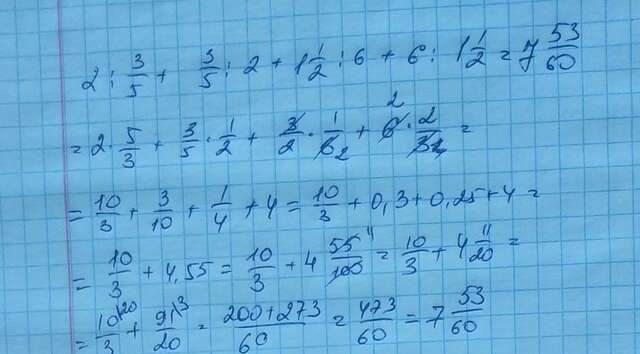 2 : 3/5 + 3/5 : 2 + 1 1/2 : 6 + 6 : 1 1/2 = 7 53/60
= 2 · 5/3 + 3/5 · 1/2 + 3/2 · 1/6 2 + 6 2 · 2/3 1 =
= 10/3 + 3/10 + 1/4 + 4 = 10/3 + 0,3 + 0,25 + 4 =
= 10/3 + 4,55 = 10/3 + 4 55/100 11 = 10/3 + 4 11/20 =
= 10/3 20 + 91/20 3 = 200+273/60 = 473/60 = 7 53/60